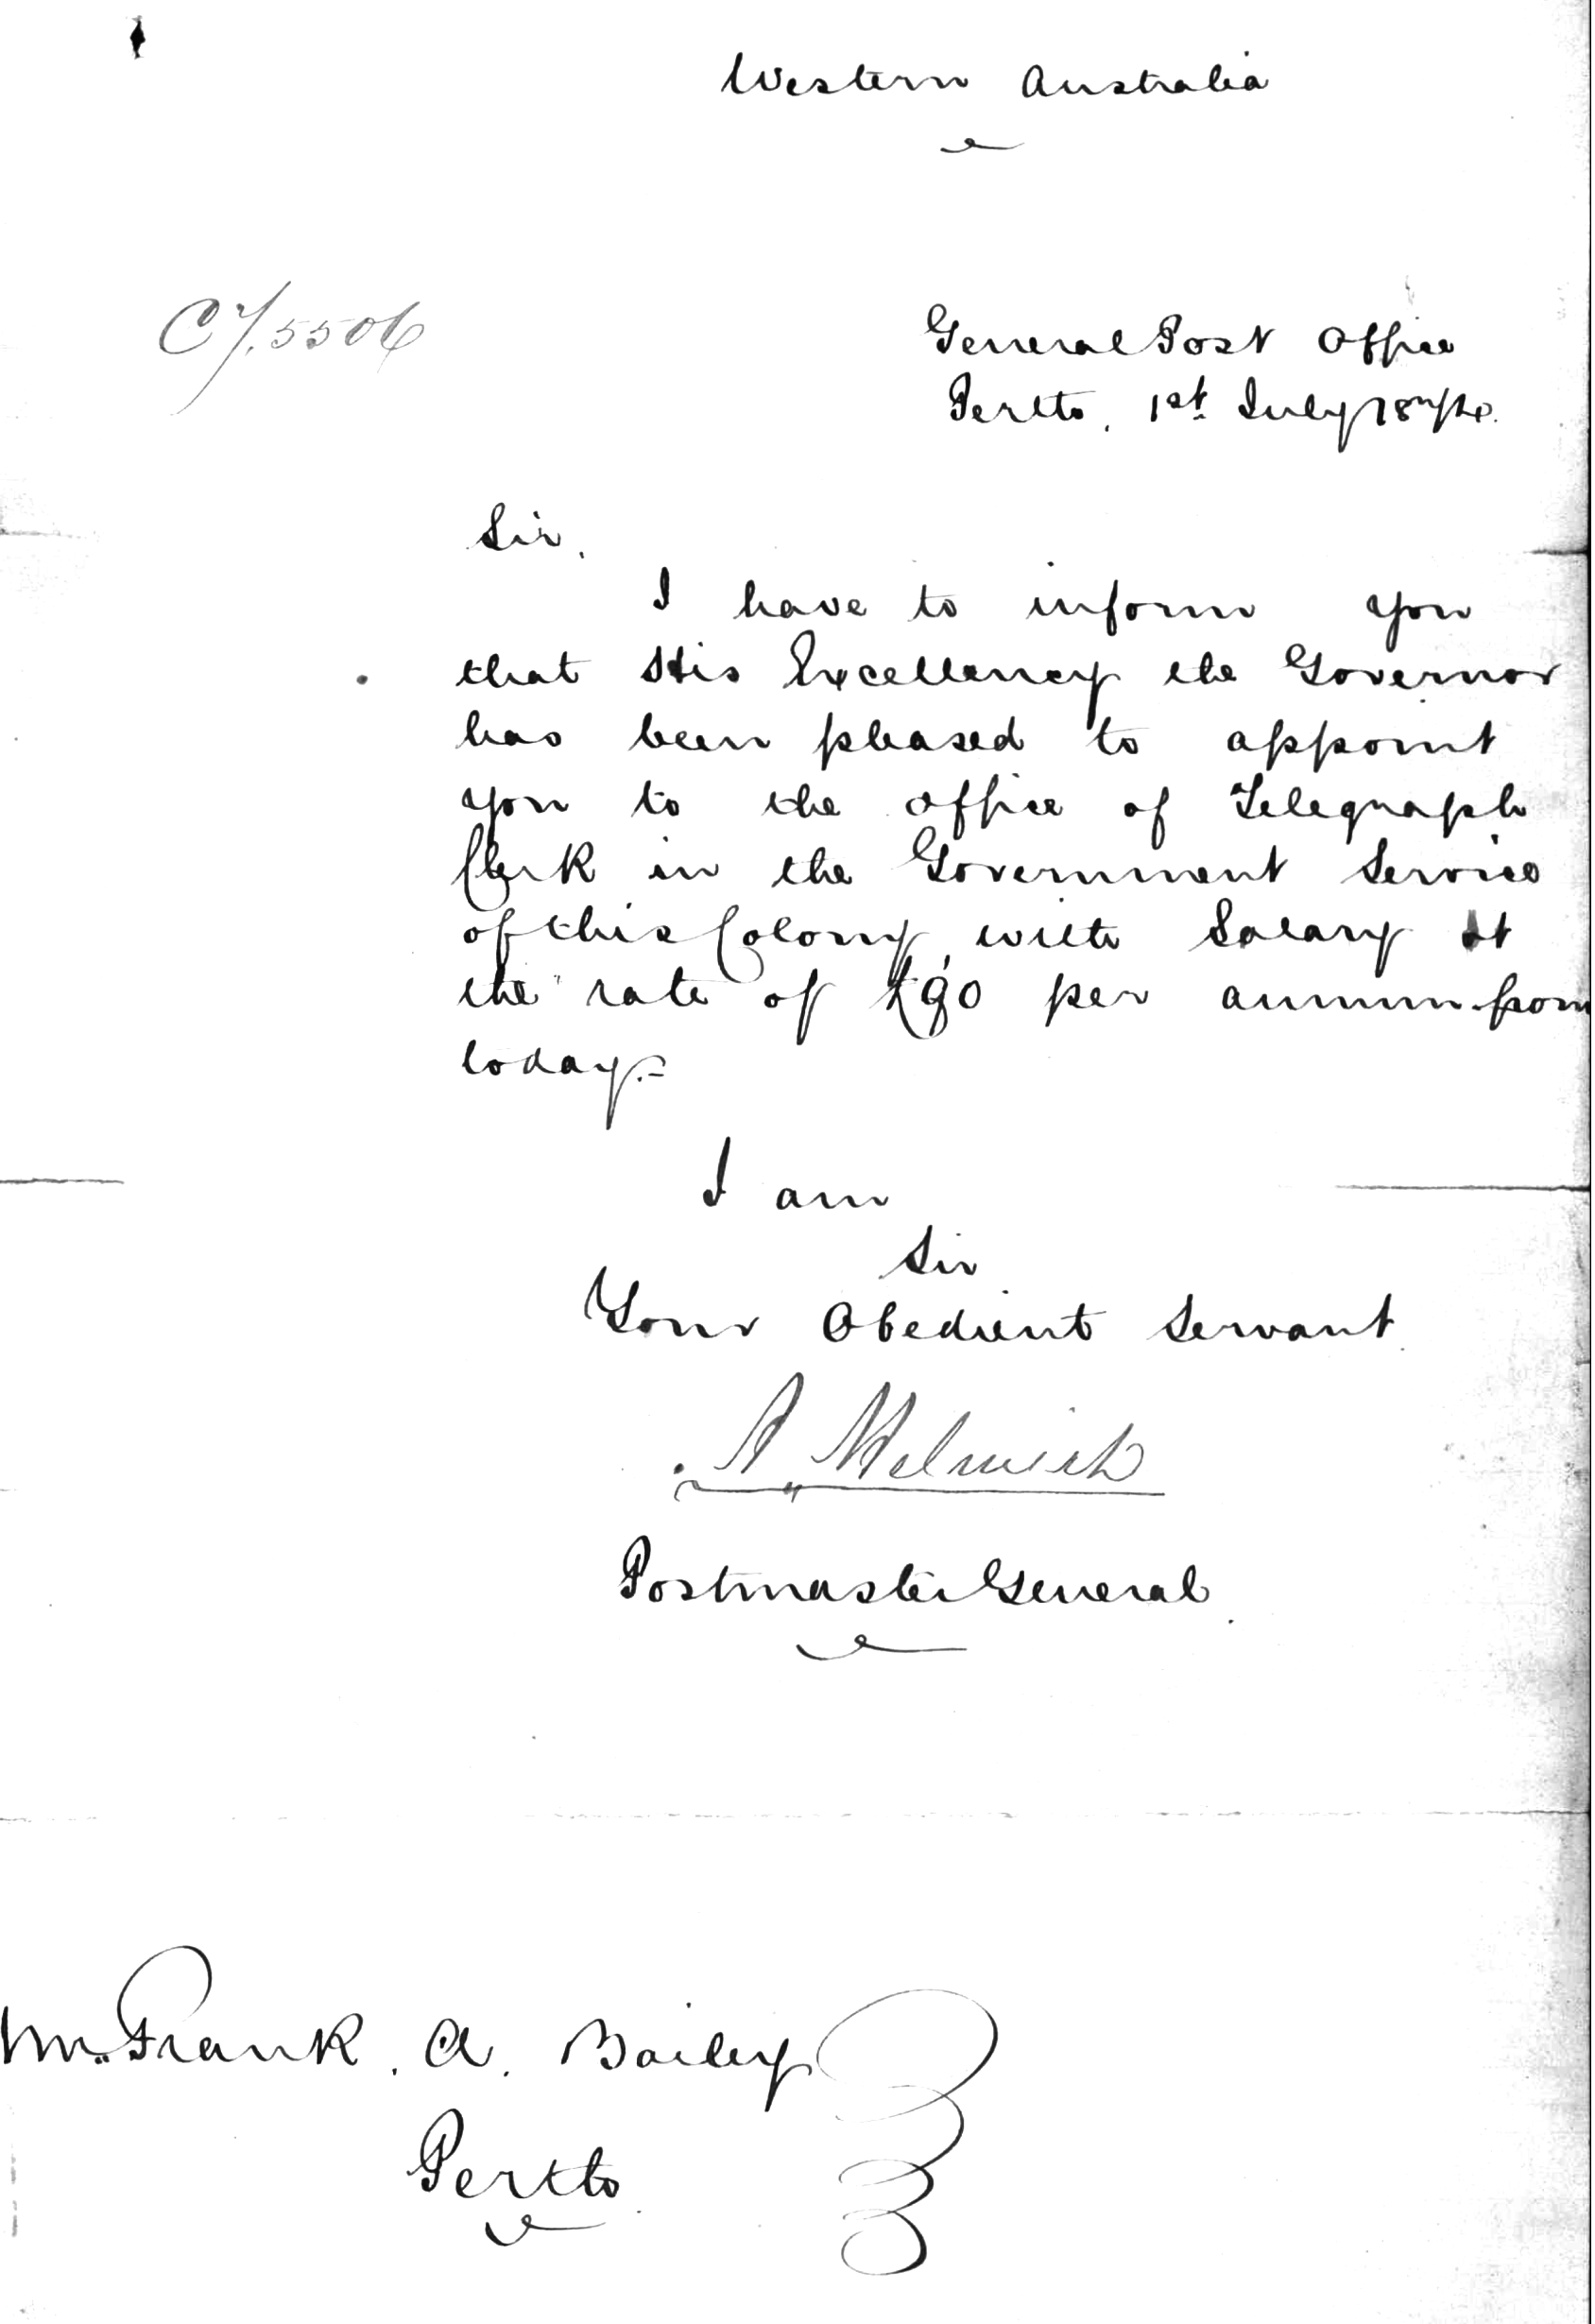 Western Australia
C7/.5506
General Post Office
Perth, 1st July
Sir,
I have to inform you
that His Excellency the Governor
has been pleased to appoint
you to the office of Telegraph
Clerk in the Government Service
of this Colony, with Salary at
the rate of £90 per annum from
today.=
I am
Sir
Your Obedient Servant
A. Helmich
Postmaster General.
Mr. Frank. A. Bailey
Perth.